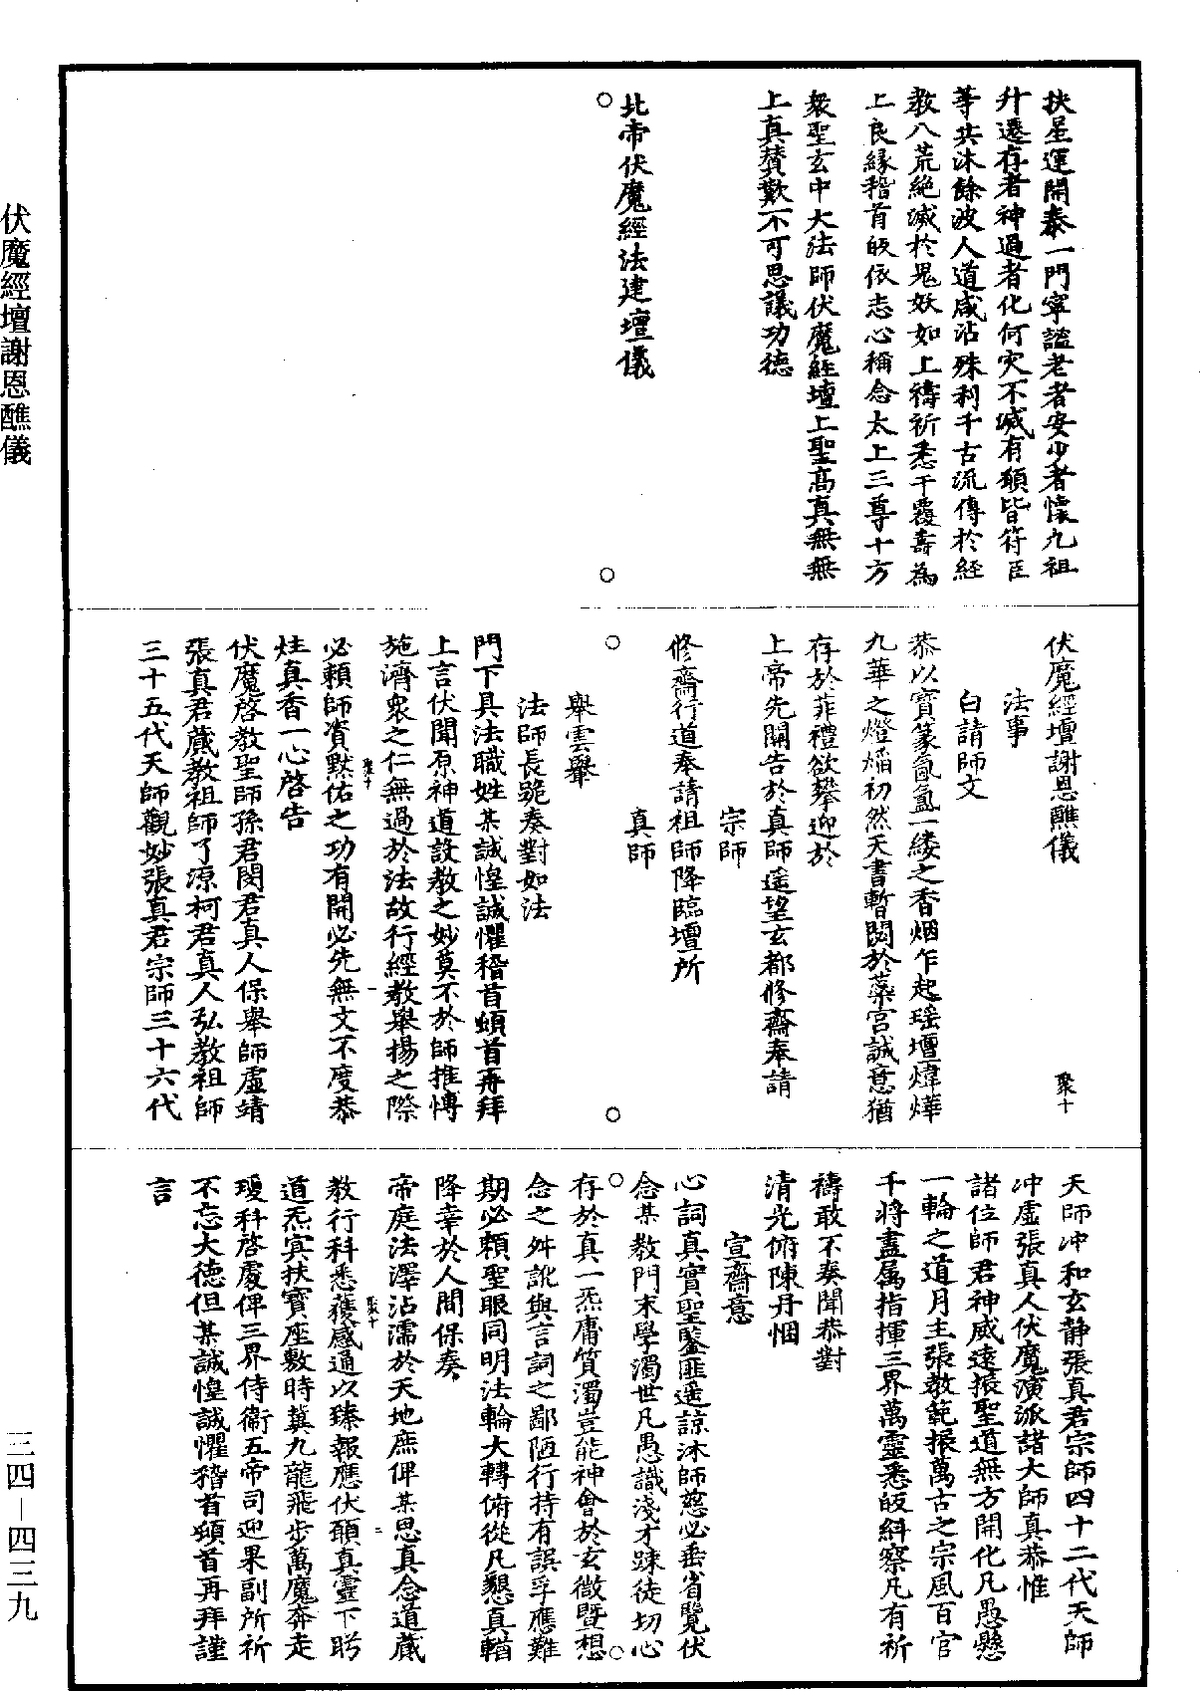 扶星運開泰一門寧謐老者安少者懷九祖
升遷存者神過者化何灾不滅有願皆符臣
等共沐餘波人道咸沾殊利千古流傳於經
教八荒絶滅於鬼妖如上禱祈悉干覆燾為
上良緣稽首皈依志心稱念太上三尊十方
衆聖玄中大法師伏魔經壇上聖高真無無
上真賛歎不可思議功德
北帝伏魔經法建壇儀
伏魔經壇謝恩醮儀
聚十
法事
白請師文
恭以寶篆氤氳一縷之香烟乍起瑶壇煒燁
九華之燈熖初然天書暫閱於蘂宫誠意猶
存於菲禮欲攀迎於
上帝先關告於真師遥望玄都修齋奉請
宗師
修齋行道奉請祖師降臨壇所
真師
舉雲轝
法師長跪奏對如法
門下具法職姓某誠惶誠懼稽首頓首再拜
上言伏聞原神道設教之妙莫不於師推愽
施濟衆之仁無過於法故行經教舉揚之際
必頼師資黙佑之功有開必先無文不度恭
炷真香一心啓告
伏魔啓教聖師孫君閔君真人保舉師虚靖
張真君蔵教祖師了源柯君真人弘教祖師
三十五代天師觀妙張真君宗師三十六代
天師冲和玄静張真君宗師四十二代天師
冲虚張真人伏魔演派諸大師真恭惟
諸位師君神威遠振聖道無方開化凡愚懸
一輪之道月主張教範振萬古之宗風百官
千將盡属指揮三界萬靈悉皈糾察凡有祈
禱敢不奏聞恭對
清光俯陳丹悃
宣齋意
心詞真實聖鑒匪遥諒沐師慈必垂省覽伏
念某教門末學濁世凡愚識淺才踈徒切心
存於真一炁庸質濁豈能神會於玄微曁想
念之舛訛與言詞之鄙陋行持有誤孚應難
期必頼聖眼同明法輪大轉俯從凡懇真輶
降幸於人間保奏
帝庭法澤沾濡於天地庶俾某思真念道蔵
教行科悉䕶感通以臻報應伏願真靈下盻
道炁㝠扶寳座敷時冀九龍飛步萬魔奔走
瓊科啓處俾三界侍衞五帝司迎果副所祈
不忘大德但某誠惶誠懼稽首頓首再拜謹
言
伏魔經壇謝恩醮儀
三四－四三九